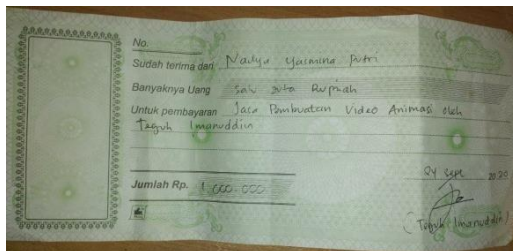 No.
Sudah terima dari Nadya Yasmina Putri
Banyaknya Uang Satu Juta Rupiah
Untuk pembayaran Jasa Pembuatan Video Animasi oleh
Teguh Imanuddin
Jumlah Rp. 1.000.000
24 Sept 2020
(Teguh Imanuddin)